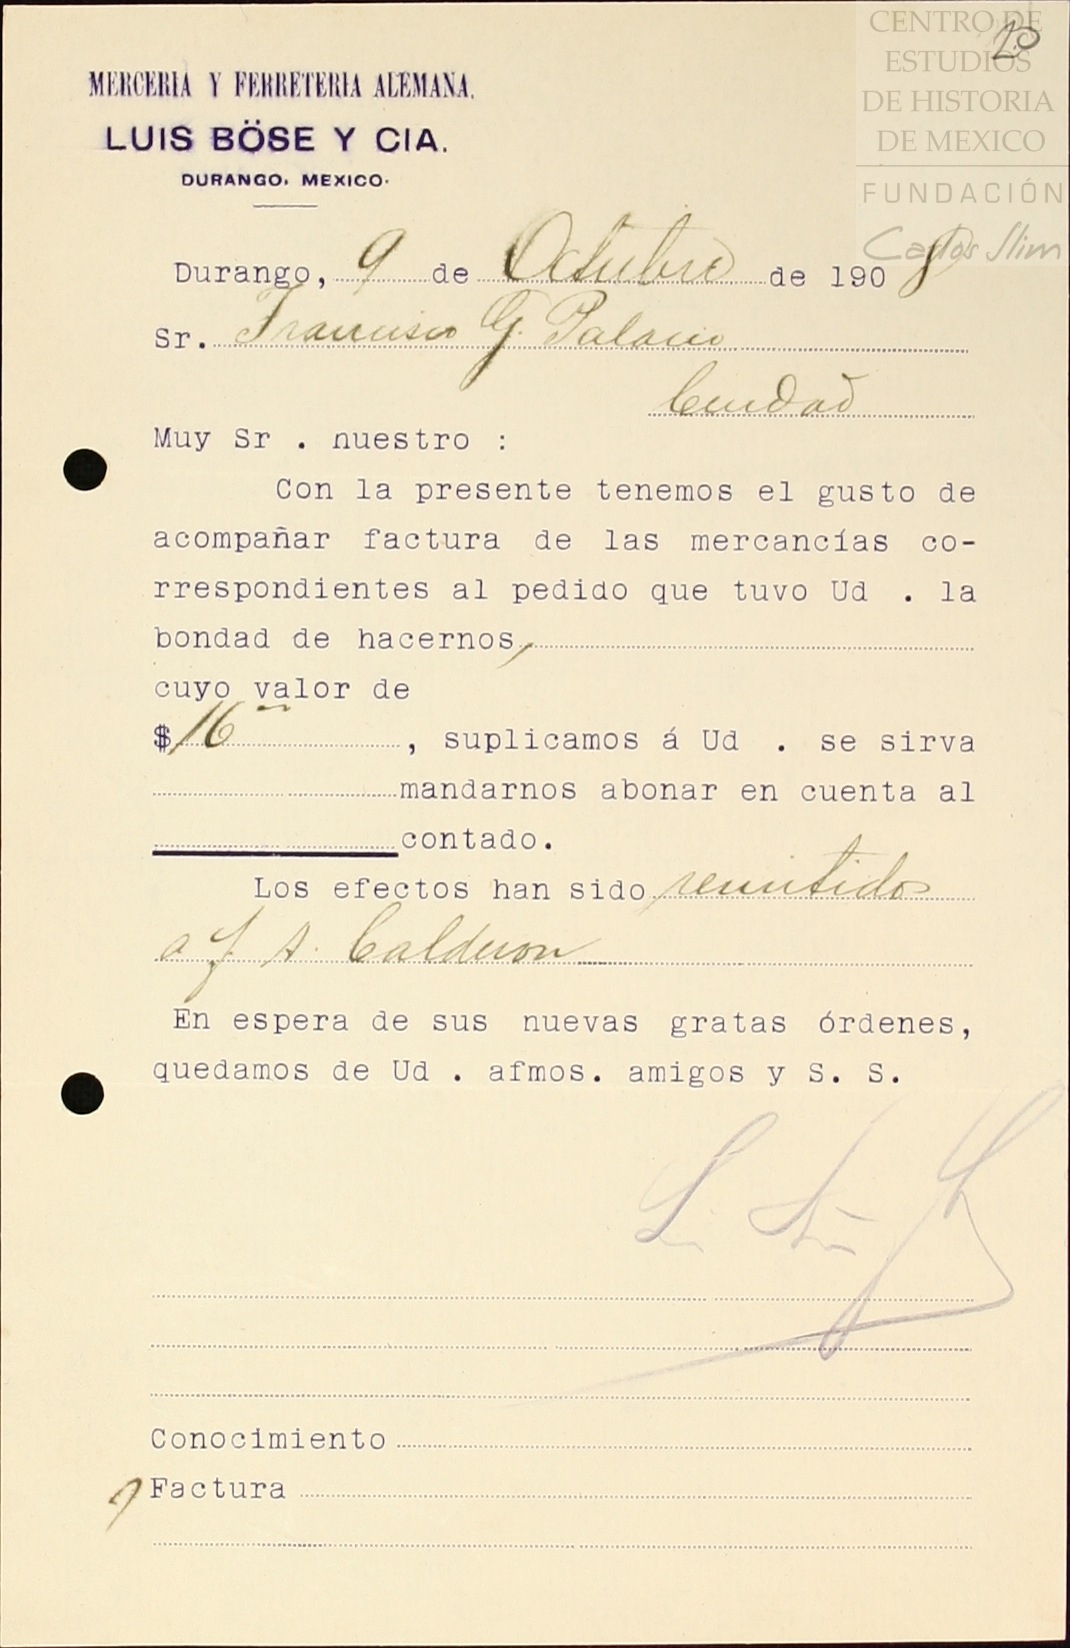 CENTRO DE
ESTUDIOS
DE HISTORIA
DE MEXICO
FUNDACIÓN
Carlos Slim
20
MERCERIA Y FERRETERIA ALEMANA.
LUIS BÖSE Y CIA.
DURANGO, MEXICO.
Durango, 9 de Octubre de 1908
Sr. Francisco G. Palacio
Ciudad
Muy Sr . nuestro :
Con la presente tenemos el gusto de
acompañar factura de las mercancías co-
rrespondientes al pedido que tuvo Ud . la
bondad de hacernos,
cuyo valor de
$ 16 , suplicamos á Ud . se sirva
mandarnos abonar en cuenta al
contado.
Los efectos han sido remitidos
a J. A. Calderon
En espera de sus nuevas gratas órdenes,
quedamos de Ud . afmos. amigos y S. S.
Conocimiento
Factura